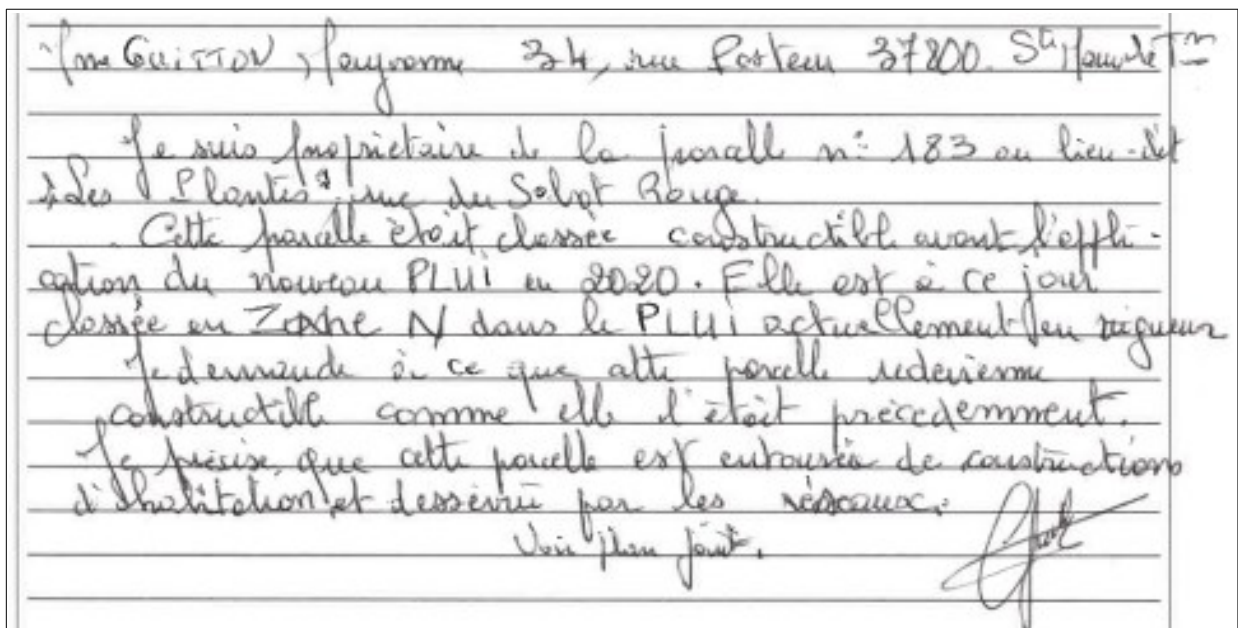 Mme GUITTON, 34, rue Pasteur 37800. Ste Maure de T
Je suis propriétaire de la parcelle n° 183 au lieu-dit
"Les Plantes" rue du Sabot Rouge.
Cette parcelle était classée constructible avant l'appli-
cation du nouveau PLUi en 2020. Elle est à ce jour
classée en Zone N dans le PLUi actuellement en vigueur
Je demande à ce que cette parcelle redevienne
constructible comme elle l'était précedemment.
Je précise que cette parcelle est entourée de constructions
d'habitation et desservie par les réseaux.
Voir plan joint.